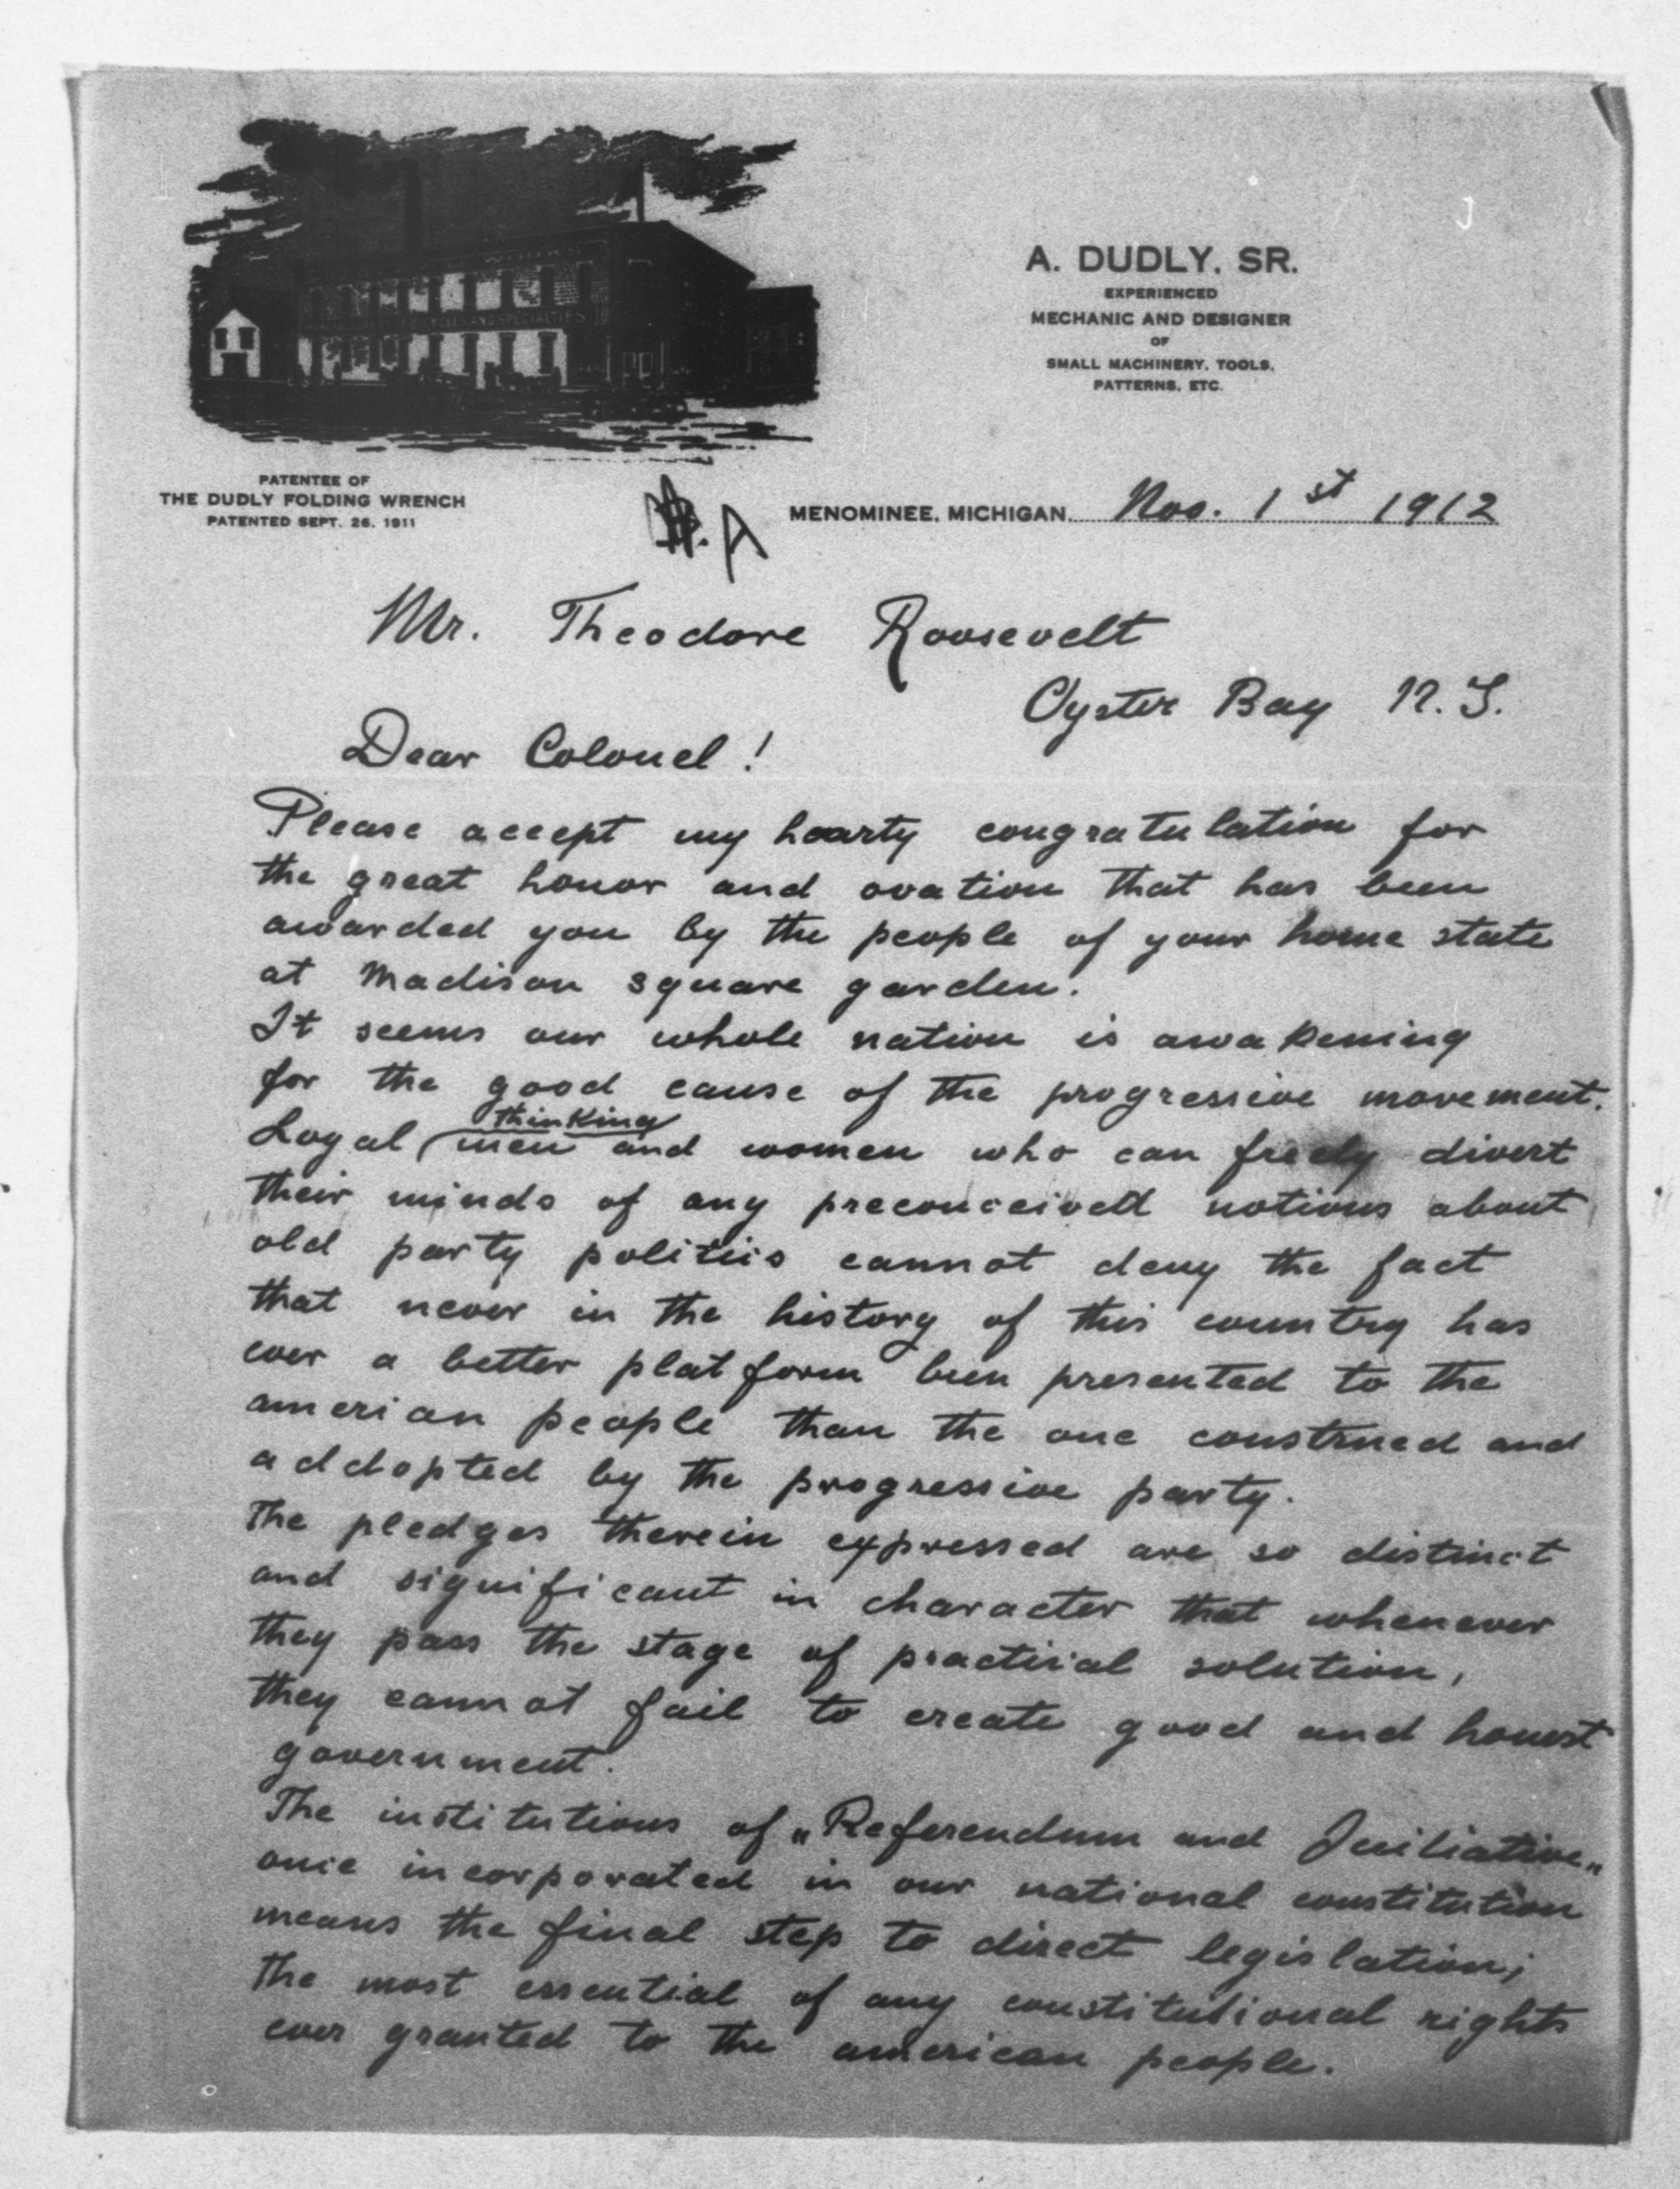 A. DUDLY, SR.
EXPERIENCED
MECHANIC AND DESIGNER
OF
SMALL MACHINERY, TOOLS,
PATTERNS, ETC.
CYCLES AND SPECIALTIES
PATENTEE OF
THE DUDLY FOLDING WRENCH
PATENTED SEPT. 26, 1911
A
MENOMINEE, MICHIGAN, Nov. 1st 1912
Mr. Theodore Roosevelt
Oyster Bay N.Y.
Dear Colonel!
Please accept my hearty congratulation for
the great honor and ovation that has been
awarded you by the people of your home state
at Madison square garden.
It seems our whole nation is awakening
for the good cause of the progressive movement.
thinking
Loyal men and women who can freely divert
their minds of any preconceived notions about
old party politics cannot deny the fact
that never in the history of this country has
ever a better platform been presented to the
amerian people than the one construed and
addopted by the progressive party.
The pledges therein expressed are so distinct
and significant in character that whenever
they pass the stage of practical solution,
they cannot fail to create good and honest
government.
The institutions of „Referendum and Iniliative„
once incorporated in our national constitution
means the final step to direct legislation;
the most essential of any constitutional rights
ever granted to the american people.